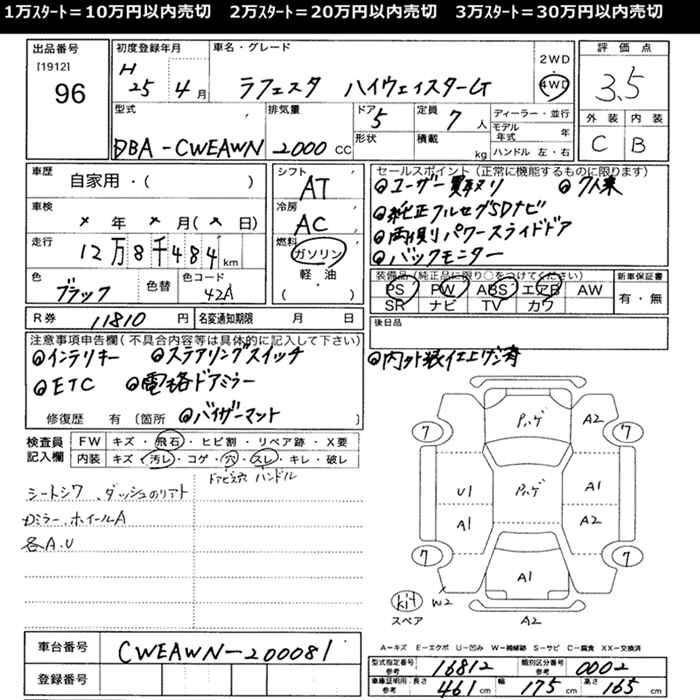 1万スタート=10万円以内売切　2万スタート=20万円以内売切　3万スタート=30万円以内売切
出品番号
[1912]
96
初度登録年月
H
25 4月
車名・グレード
ラフェスタ ハイウェイスターG
2WD
4WD
評価点
3.5
外装 内装
C B
型式
DBA-CWEAWN
排気量
2000 CC
ドア 5
形状
定員 7人
積載 kg
ディーラー・並行
モデル年式 年
ハンドル 左・右
車歴
自家用・( )
車検
× 年 × 月 (× 日)
走行
12万8千484 km
色
ブラック
色替
色コード
42A
シフト
AT
冷房
AC
燃料
ガソリン
軽油
( )
セールスポイント (正常に機能するものに限ります)
◎ユーザー買取り ◎7人乗
◎純正フルセグSDナビ
◎両側パワースライドドア
◎バックモニター
装備品(純正品に限り○をつけてください)
PS PW ABS エアB AW
SR ナビ TV カワ
新車保証書
有・無
R券 11810 円
名変通知期限 月 日
後日品
注意事項申告欄(不具合内容等は具体的に記入して下さい)
◎インテリキー ◎ステアリングスイッチ
◎ETC ◎電格ドアミラー
修復歴 有 (箇所 ◎バイザーマット
◎内外装仕上ゲ済
検査員記入欄
FW キズ・飛石・ヒビ割・リペア跡・X要
内装 キズ・汚レ・コゲ・穴・スレ・キレ・破レ
ドアビス穴 ハンドル
シートシワ、ダッシュのリアト
Dミラー、ホイールA
各A.U
パハゲ
A2
7
7
U1
パハゲ
A1
A1
A2
7
7
A1
キit
W2
スペア
A2
A-キズ E-エクボ U-凹み W-補修跡 S-サビ C-腐食 XX-交換済
車台番号
CWEAWN-200081
登録番号
型式指定番号 参考
16812
類別区分番号 参考
0002
車庫証明用・参考
長さ 461 cm 幅 175 cm 高さ 165 cm